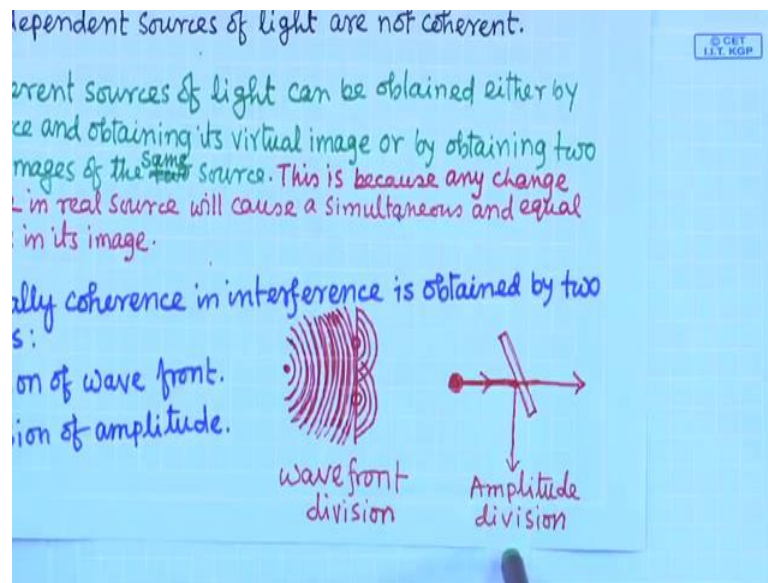 dependent sources of light are not coherent.
© CET
I.I.T. KGP
erent sources of light can be obtained either by
ce and obtaining its virtual image or by obtaining two
mages of the same source. This is because any change
in real source will cause a simultaneous and equal
in its image.
ally coherence in interference is obtained by two
s:
on of wave front.
ion of amplitude.
wavefront
division
Amplitude
division